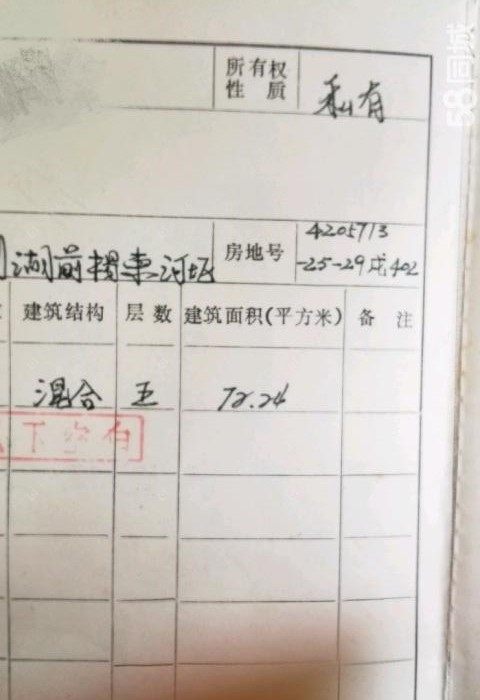 所有权
性 质
私有
58同城
湖前
东河坂
房地号
4205713
-25-29戍402
建筑结构
层数
建筑面积(平方米)
备 注
混合
五
72.24
下空白